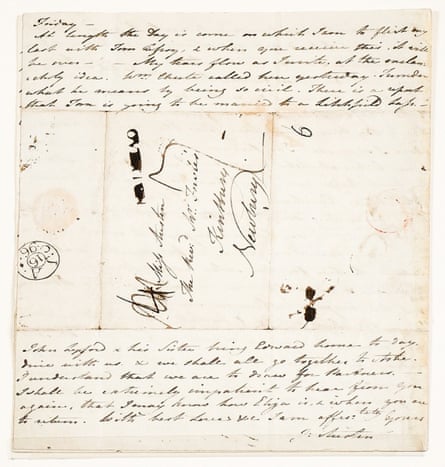 Friday –
At length the Day is come on which I am to flirt my
last with Tom Lefroy, & when you receive this it will
be over — My tears flow as I write, at the melan:
:choly idea. Wm. Chute called here yesterday. I wonder
what he means by being so civil. There is a report
that Tom is going to be married to a Litchfield lass –
Miss Austen
The Revd. Mr. Fowle's
Kintbury
Newbury
6
John Lyford & his Sister bring Edward home to day,
dine with us, & we shall all go together to Ashe.
I understand that we are to draw for Partners. –
I shall be extremely impatient to hear from you
again, that I may know how Eliza is, & when you are
to return. With best Love &c I am affectely Yours
J: Austen